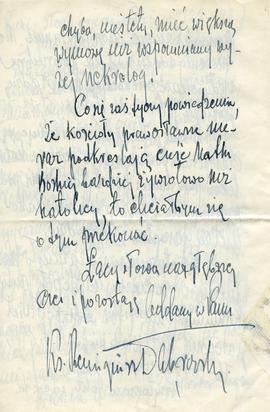 chyba, niestety, mieć większą
wymowę niż wspomniany wy-
żej nekrolog.
Co się zaś tyczy powiedzenia,
że kościoły prawosławne nie-
raz podkreślają cześć Matki
Boskiej bardziej, żywiołowo niż
katolicy, to chciałbym się
o tym przekonać.
słowa najgłębszej
czci i pozostaję oddany w Panu
Ks.